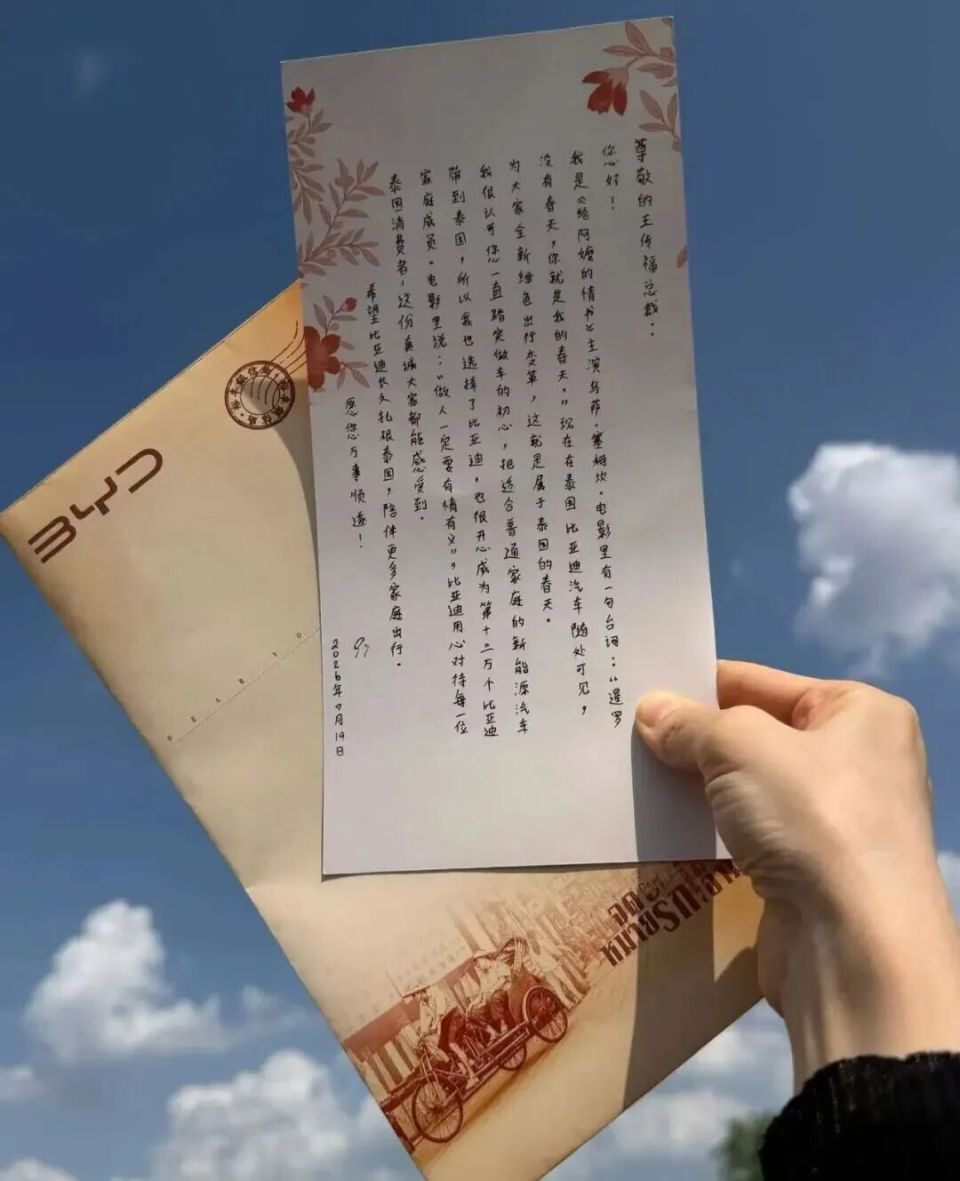 尊敬的王传福总裁：
你好！
我是《给阿嬷的情书》主演乌萨·塞姆坎。电影里有一句台词：“暹罗
没有春天，你就是我的春天。”现在在泰国比亚迪汽车随处可见，
为大家全新绿色出行变革，这就是属于泰国的春天。
我很认可您一直踏实做车的初心，把适合普通家庭的新能源汽车
带到泰国，所以我也选择了比亚迪，也很开心成为第十二万个比亚迪
家庭成员。电影里说：“做人一定要有情有义”，比亚迪用心对待每一位
泰国消费者，这份真诚大家都能感受到。
希望比亚迪长久扎根泰国，陪伴更多家庭出行。
愿您万事顺遂！
2026年7月19日
BYD
DEAR YO
จดหมายรัก